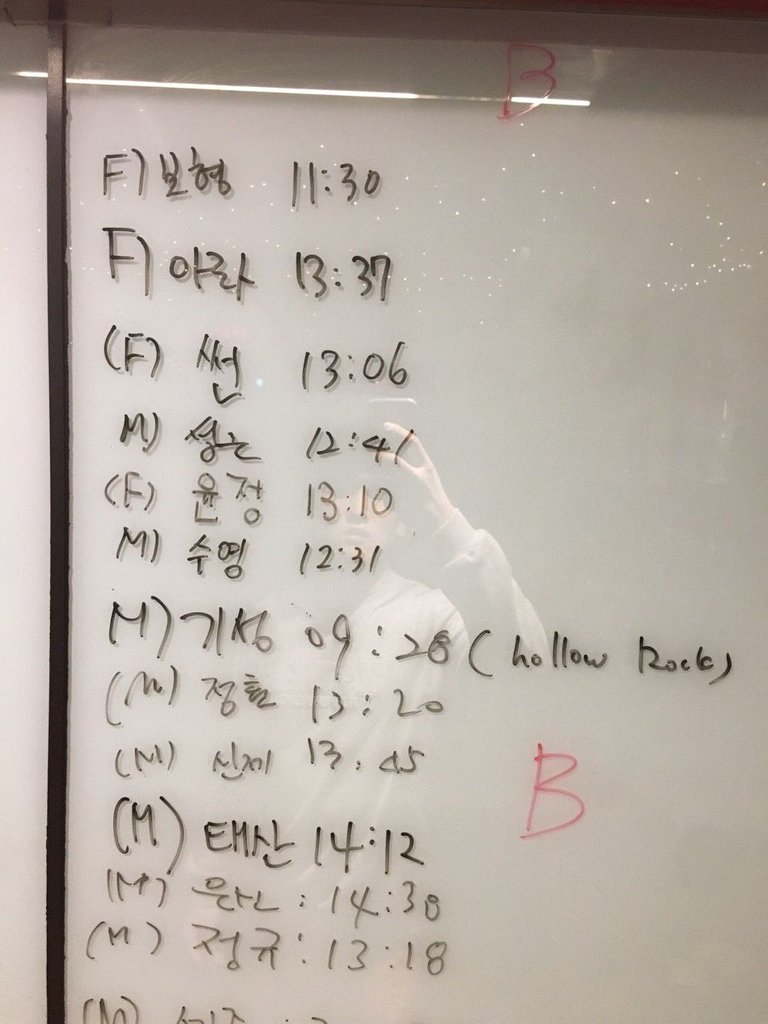 B
F) 보형 11:30
F) 아라 13:37
(F) 썬 13:06
M) 12:41
(F) 윤정 13:10
M) 수영 12:31
M) 기성 09:28 (hollow Rock)
(M) 정훈 13:20
(M) 신제 13:45
B
(M) 태산 14:12
(M) 14:30
(M) 정규: 13:18
(M)